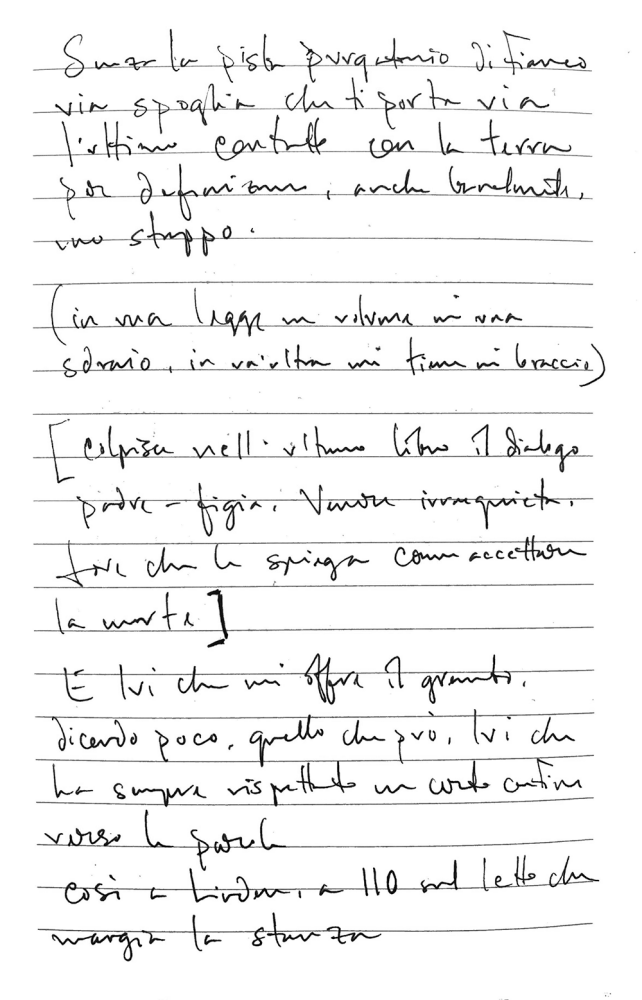 Senza la pista purgatorio di fianco
via spoglia che ti porta via
l'ultimo contatto con la terra
per definizione, anche
uno strappo.
(in una legge un volume in una
sdraio, in un'altra mi tiene in braccio)
[colpisce nell'ultimo libro il dialogo
padre-figia. Venere irrequieta.
Giove che le spiega come accettare
la morte]
È lui che mi offre il
dicendo poco, quello che può, lui che
ha sempre rispettato un certo confine
verso le parole
così a a 110 sul letto che
mangia la stanza